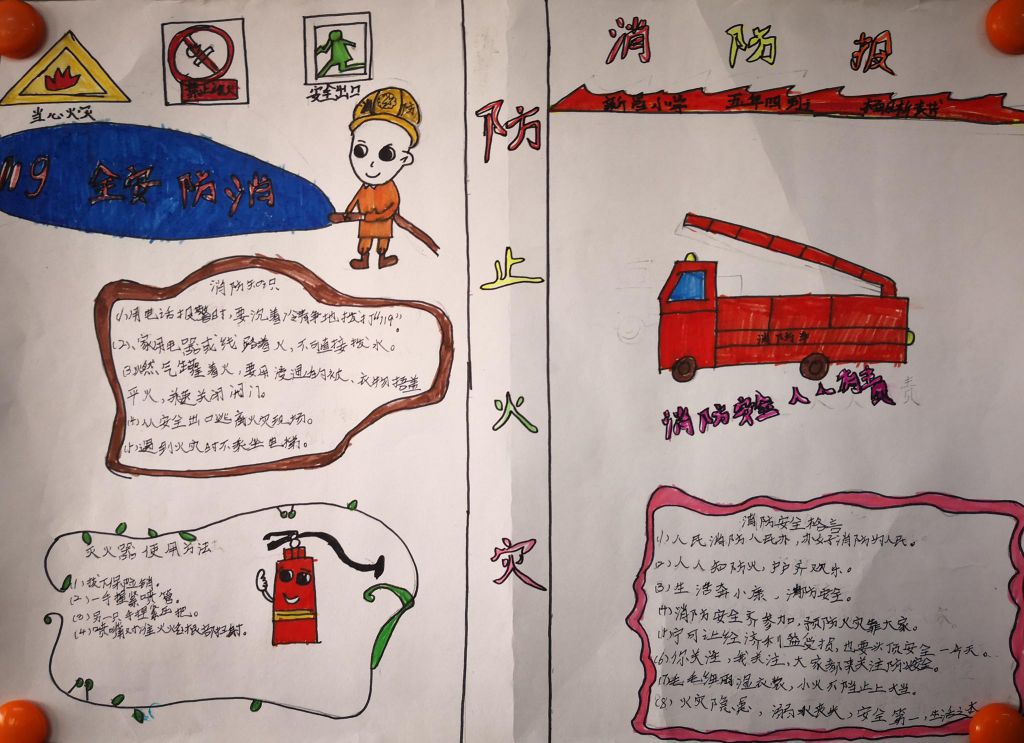 当心火灾
禁止烟火
安全出口
119 全安防消
消防知识
(1)用电话报警时，要沉着冷静地拨打“119”。
(2)、家用电器或线路着火，不可直接拨水。
(3)燃气罐着火，要用浸过的被、衣物捂盖
平火，并关闭闭门。
(4)从安全出口逃离火灾现场。
(5)遇到火灾时不乘坐电梯。
灭火器使用方法
(1)拔下保险销。
(2)一手握紧喷管。
(3)另一只手捏紧压把。
(4)喷嘴对准火焰根部扫射。
防
止
火
灾
消防报
小学 五年四班
消防车
消防安全 人人有责
消防安全格言
(1)人民消防人民办，办好消防为人民。
(2)人人知防火，户户齐欢乐。
(3)生活奔小康，消防安全。
(4)消防安全齐参加，预防火灾靠大家。
(5)宁可让经济利益受损，也要从顶安全一片天。
(6)你关注，我关注，大家都来关注防安全。
(7)毛毛细雨湿衣裳，小火不挡上大当。
(8)火灾隐患，安全第一，生活之本